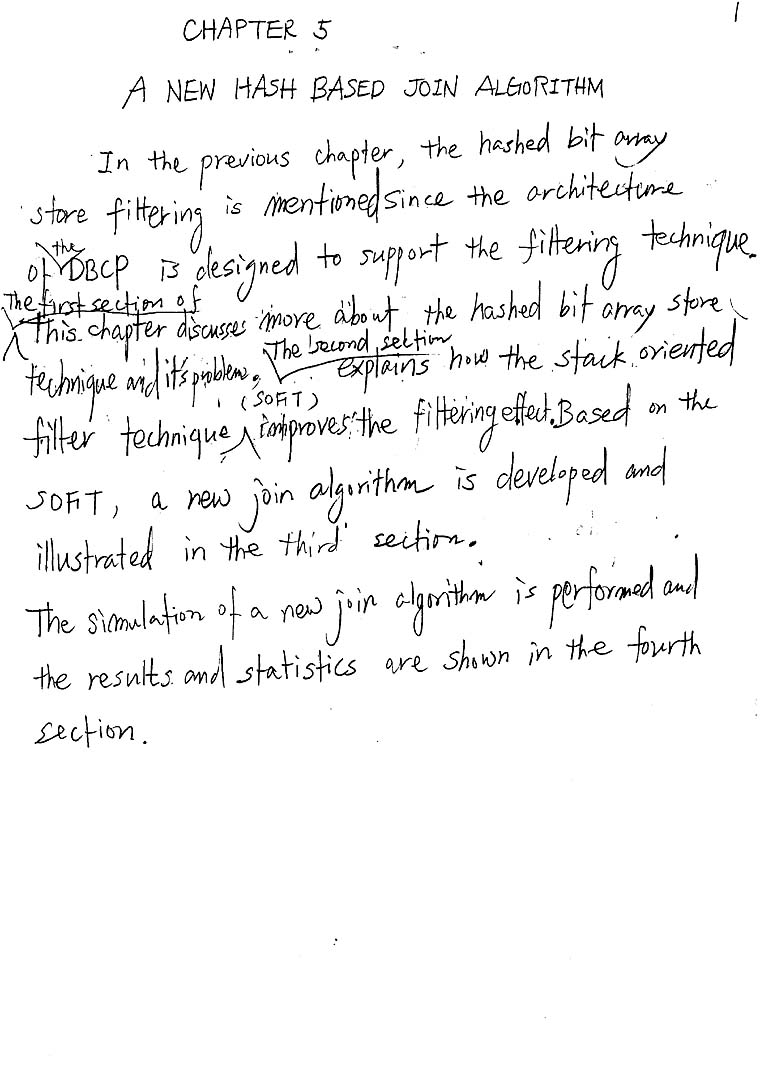 1
CHAPTER 5
A NEW HASH BASED JOIN ALGORITHM
In the previous chapter, the hashed bit array
store filtering is mentioned since the architecture
of the DBCP is designed to support the filtering technique.
The first section of
This chapter discusses more about the hashed bit array store
technique and it's problem. The second section explains how the stack oriented
filter technique (SOFT) improves the filtering effect. Based on the
SOFT, a new join algorithm is developed and
illustrated in the third section.
The simulation of a new join algorithm is performed and
the results and statistics are shown in the fourth
section.